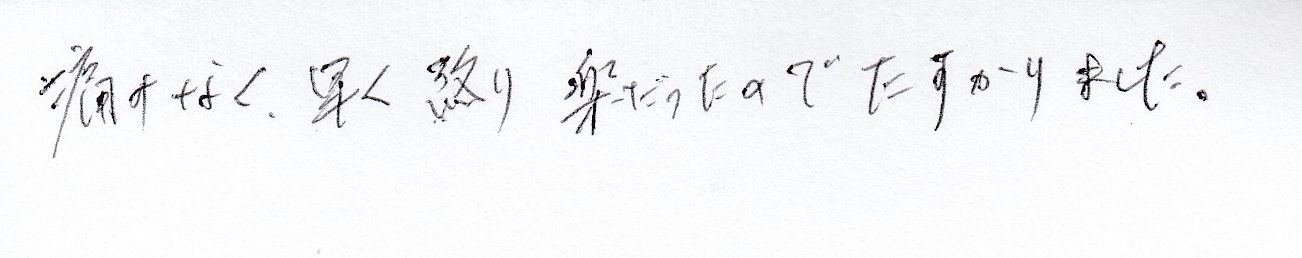 痛すなく、早く終り 楽だったのでたすかりました。